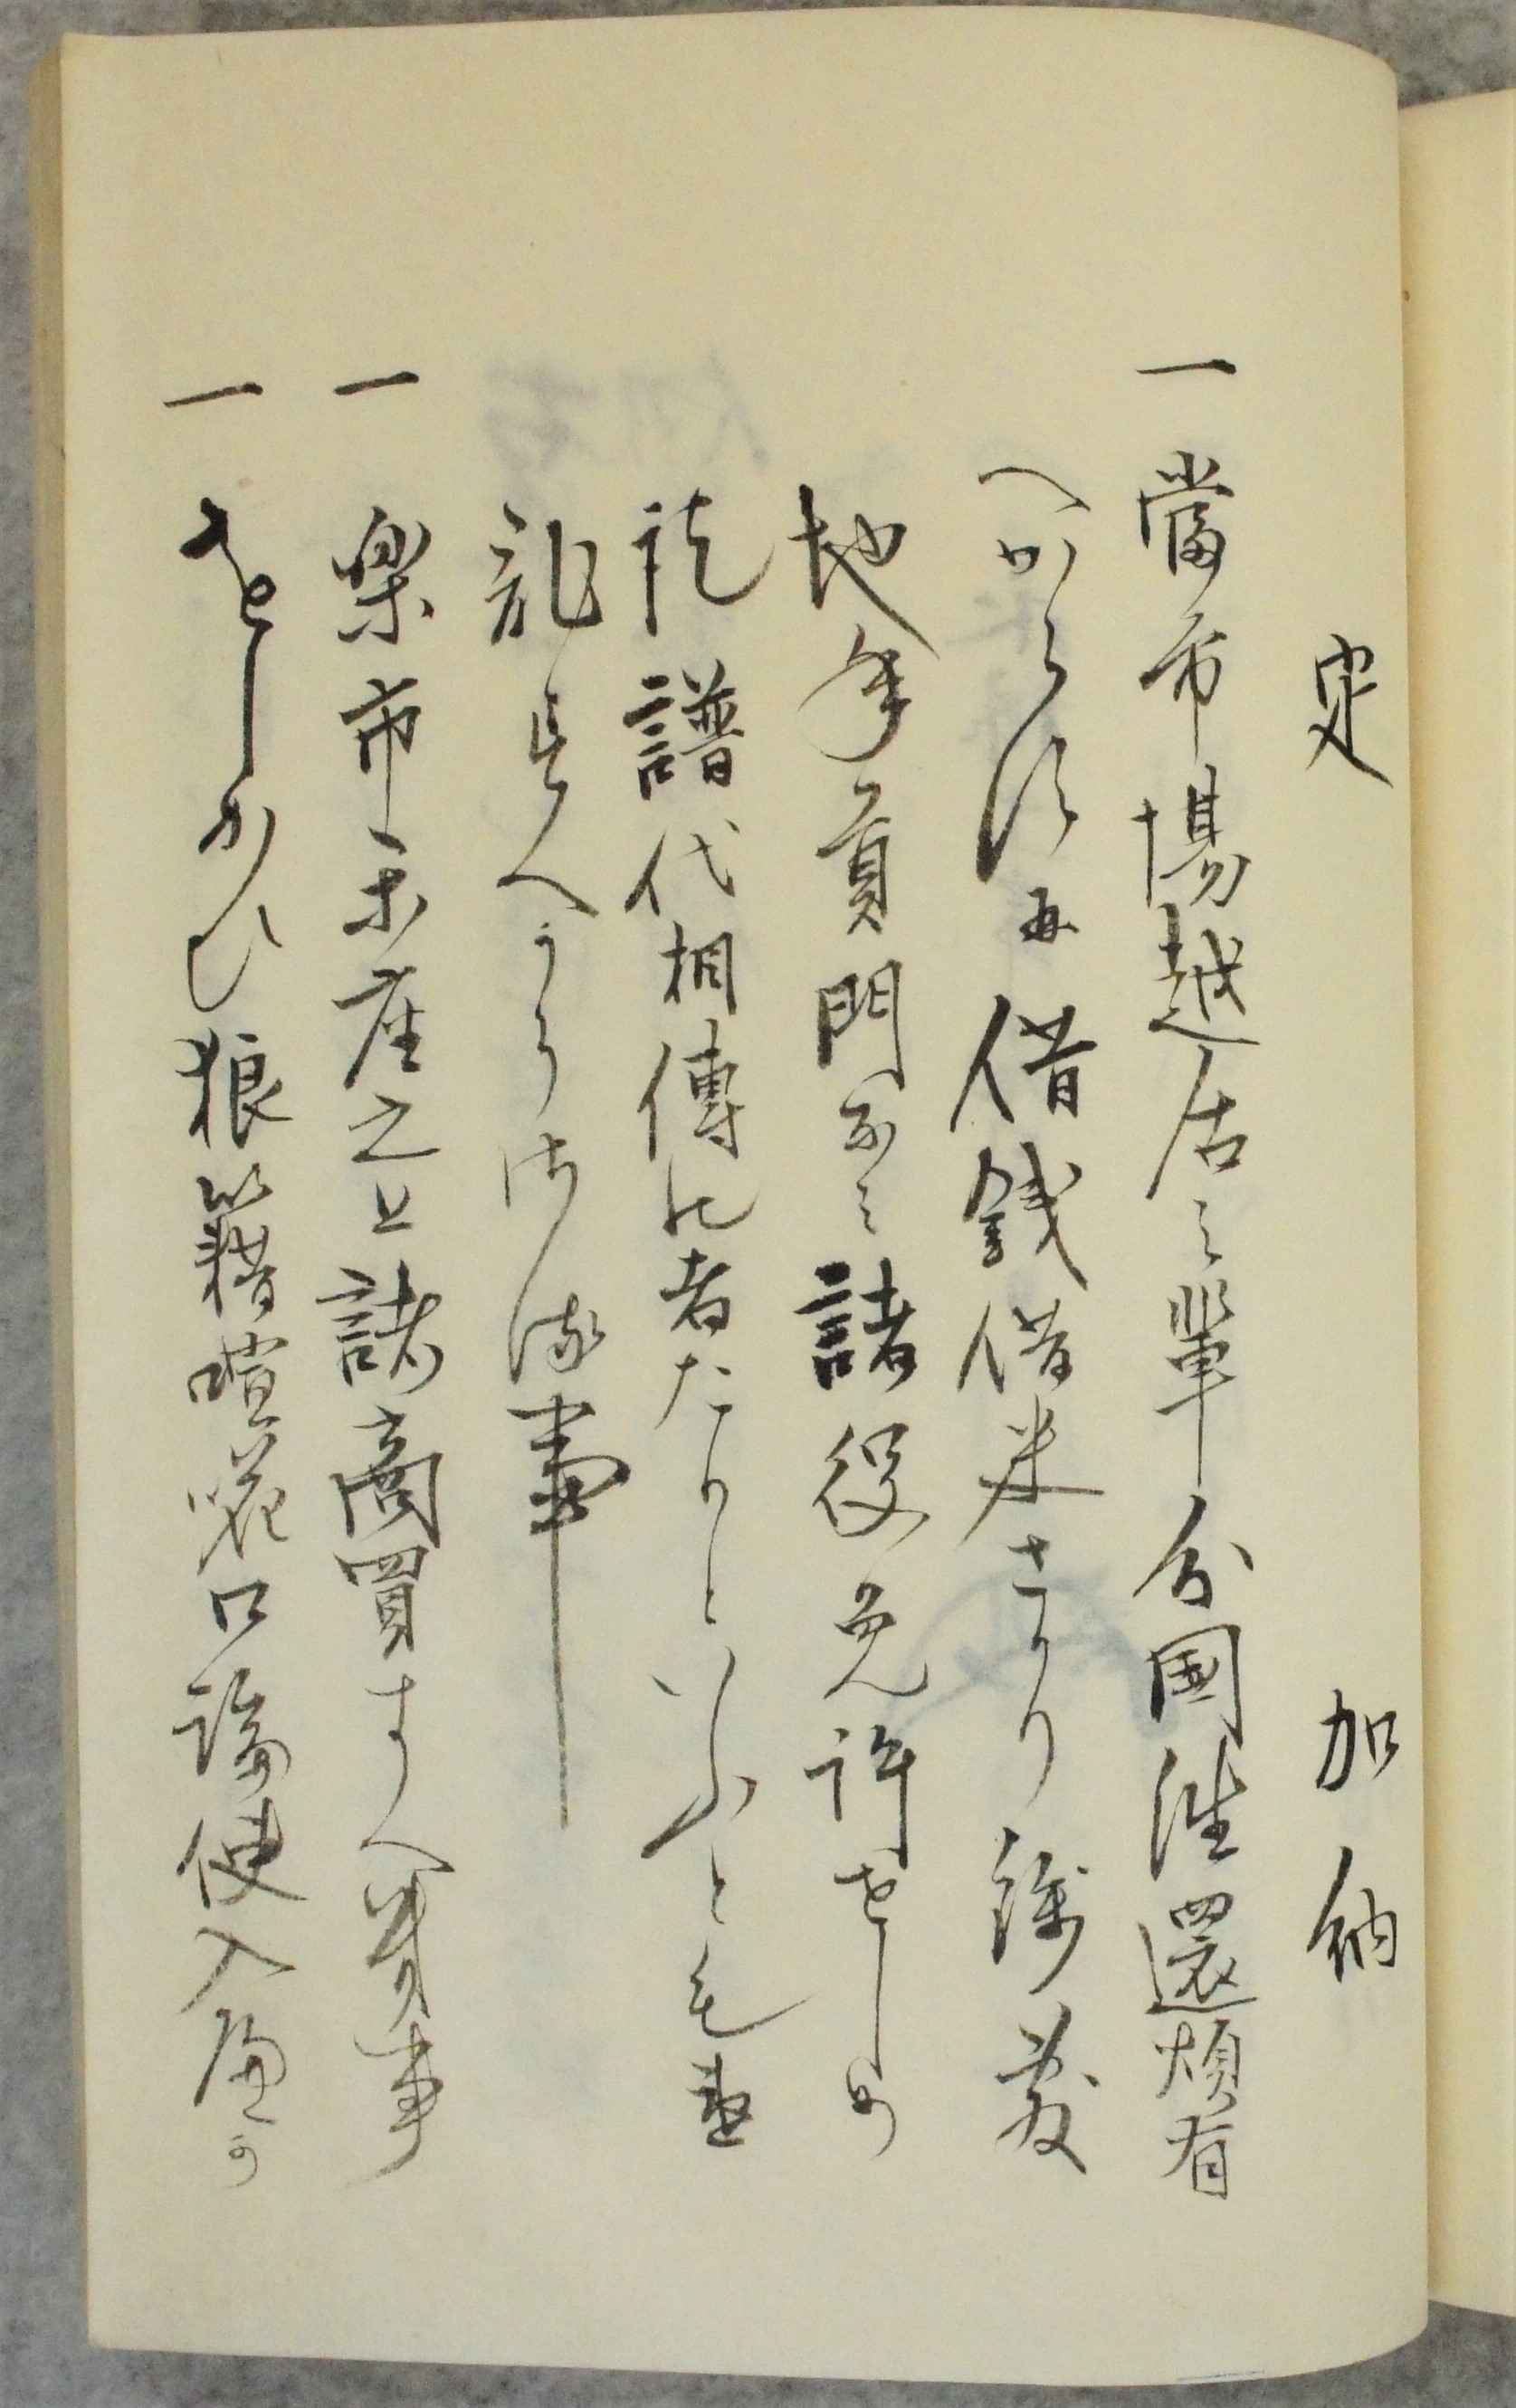 定　加納
一 當市場越居之輩分国往還煩有
へからす并借銭借米さかり銭敷
地年貢門なミ諸役免許せしめ
訖譜代相傳の者たりといふとも違
乱すへからさる事
一 楽市楽座之上諸商買すへき事
一 をしかひ狼籍喧嘩口論使入へか